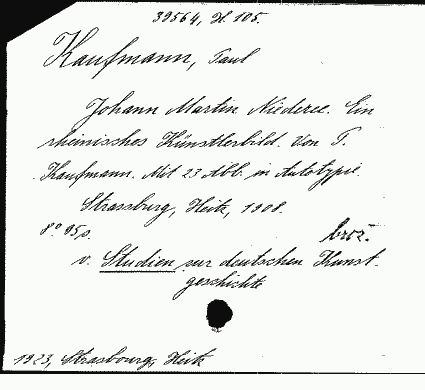 39564, H. 105.
Kaufmann, Paul
Johann Martin Niederee. Ein
rheinisches Künstlerbild. Von P.
Kaufmann. Mit 23 Abb. in Autotypie.
Strassburg, Heitz, 1908.
8° 95 s.
brož.
v. Studien zur deutschen Kunst-
geschichte
1923, Strasbourg, Heitz